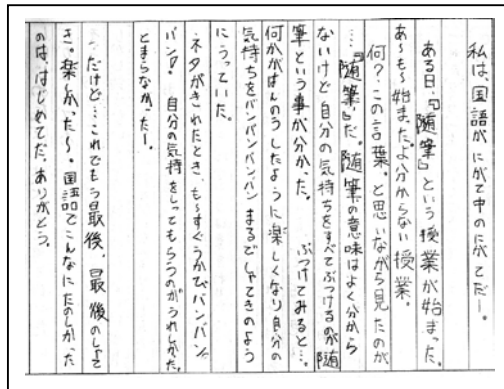 私は、国語が にがて中のにがてだー。
ある日、『随筆』という授業が始まった。
あ～も～始まったよ分からない授業。
何?この言葉。と思いながら見たのが
…『随筆』だ。随筆の意味はよく分から
ないけど自分の気持ちをすべてぶつけるのが随
筆という事が分かった。 ぶつけてみると…。
何かがはんのうしたように楽しくなり自分の
気持ちをバンバンバンバン まるでしゃてきのよう
にうっていた。
ネタがきれたとき、も～すぐうかびバンバン。
バンバン 自分の気持をしってもらうのがうれしかった。
とまらなかったー。
だけど…これでもう最後、最後のしゃて
き。楽しかった～。国語でこんなにたのしかった
のは、はじめてだ。ありがとう。